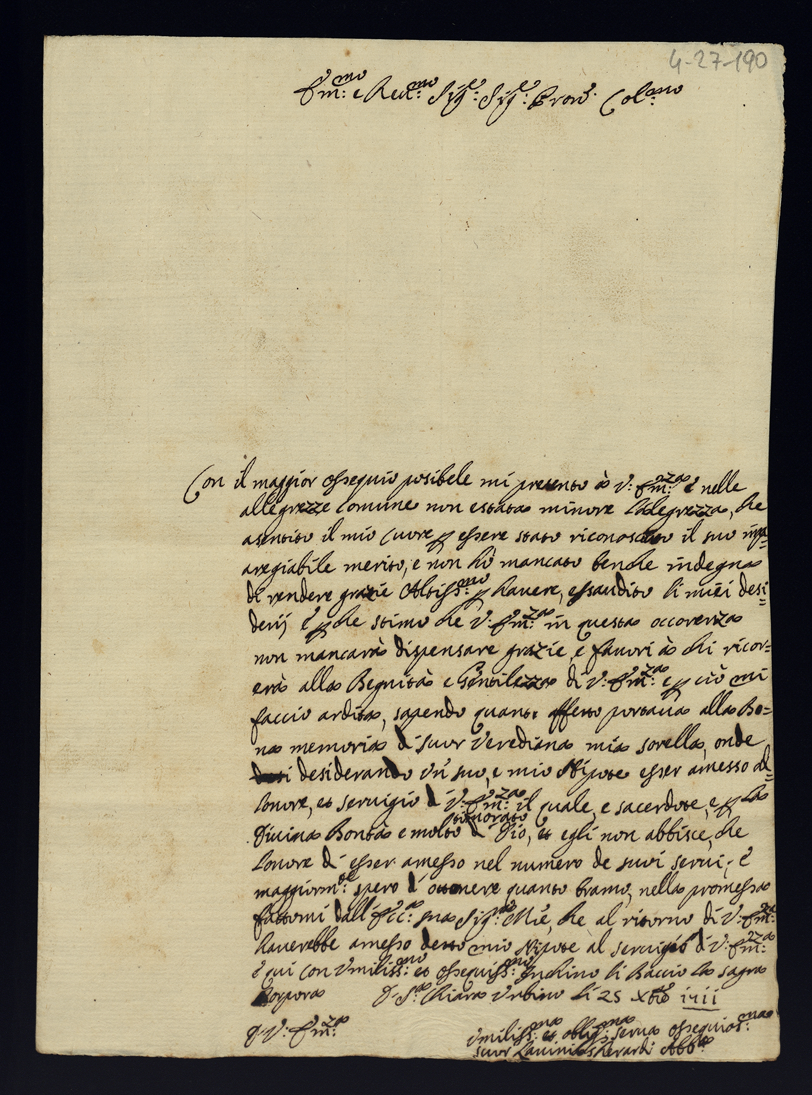 4-27-190
Em:mo e Reu:mo Sig:re Sig:re Pron: Col:mo
Con il maggior ossequio posibele mi presento à V: Em:za è nelle
allegrezze comune non estata minore l'alegrezza, che
asentito il mio Cuore p essere stato riconosciuto il suo inpa=
aregiabile merito, e non hò mancato benche indegna
di rendere grazie Altiss:mo p havere, essaudito li miei desi=
derij è p che stimo che V: Em:za in questa occorenza
non mancarà dispensare grazie, e fauori à chi ricor=
erà alla Begnità e Gentilezza di V: Em:za e p ciò mi
faccio ardita, sapendo quanto affetto portaua alla Bo=
na memoria di suor Verediana mia sorella, onde
desiderando Vn suo, e mio Nipote esser amesso al=
lonore, et seruigio di V: Em:za il quale, e sacerdote, e p la
Diuina Bontà e molto timorato di Dio, et egli non abbisce, che
lonore di esser amesso nel numero de suoi serui, è
maggiorm:te spero d'ottenere quanto bramo, nella promessa
fattomi dall'Ecc:a sua Sig:ra Mre, che al ritorno di V: Em:za
hauerebbe amesso detto mio Nipote al seruigio di V: Em:za
è qui con Vmiliss:mo et ossequiss:mo Inchino li Baccio la sagra
Porpora D S:ta Chiara Vrbino li 25 Xbre 1711
D V: Em:za
Vmiliss:ma et oblig:ma serua ossequios:ma
suor Lauinia Abb:a